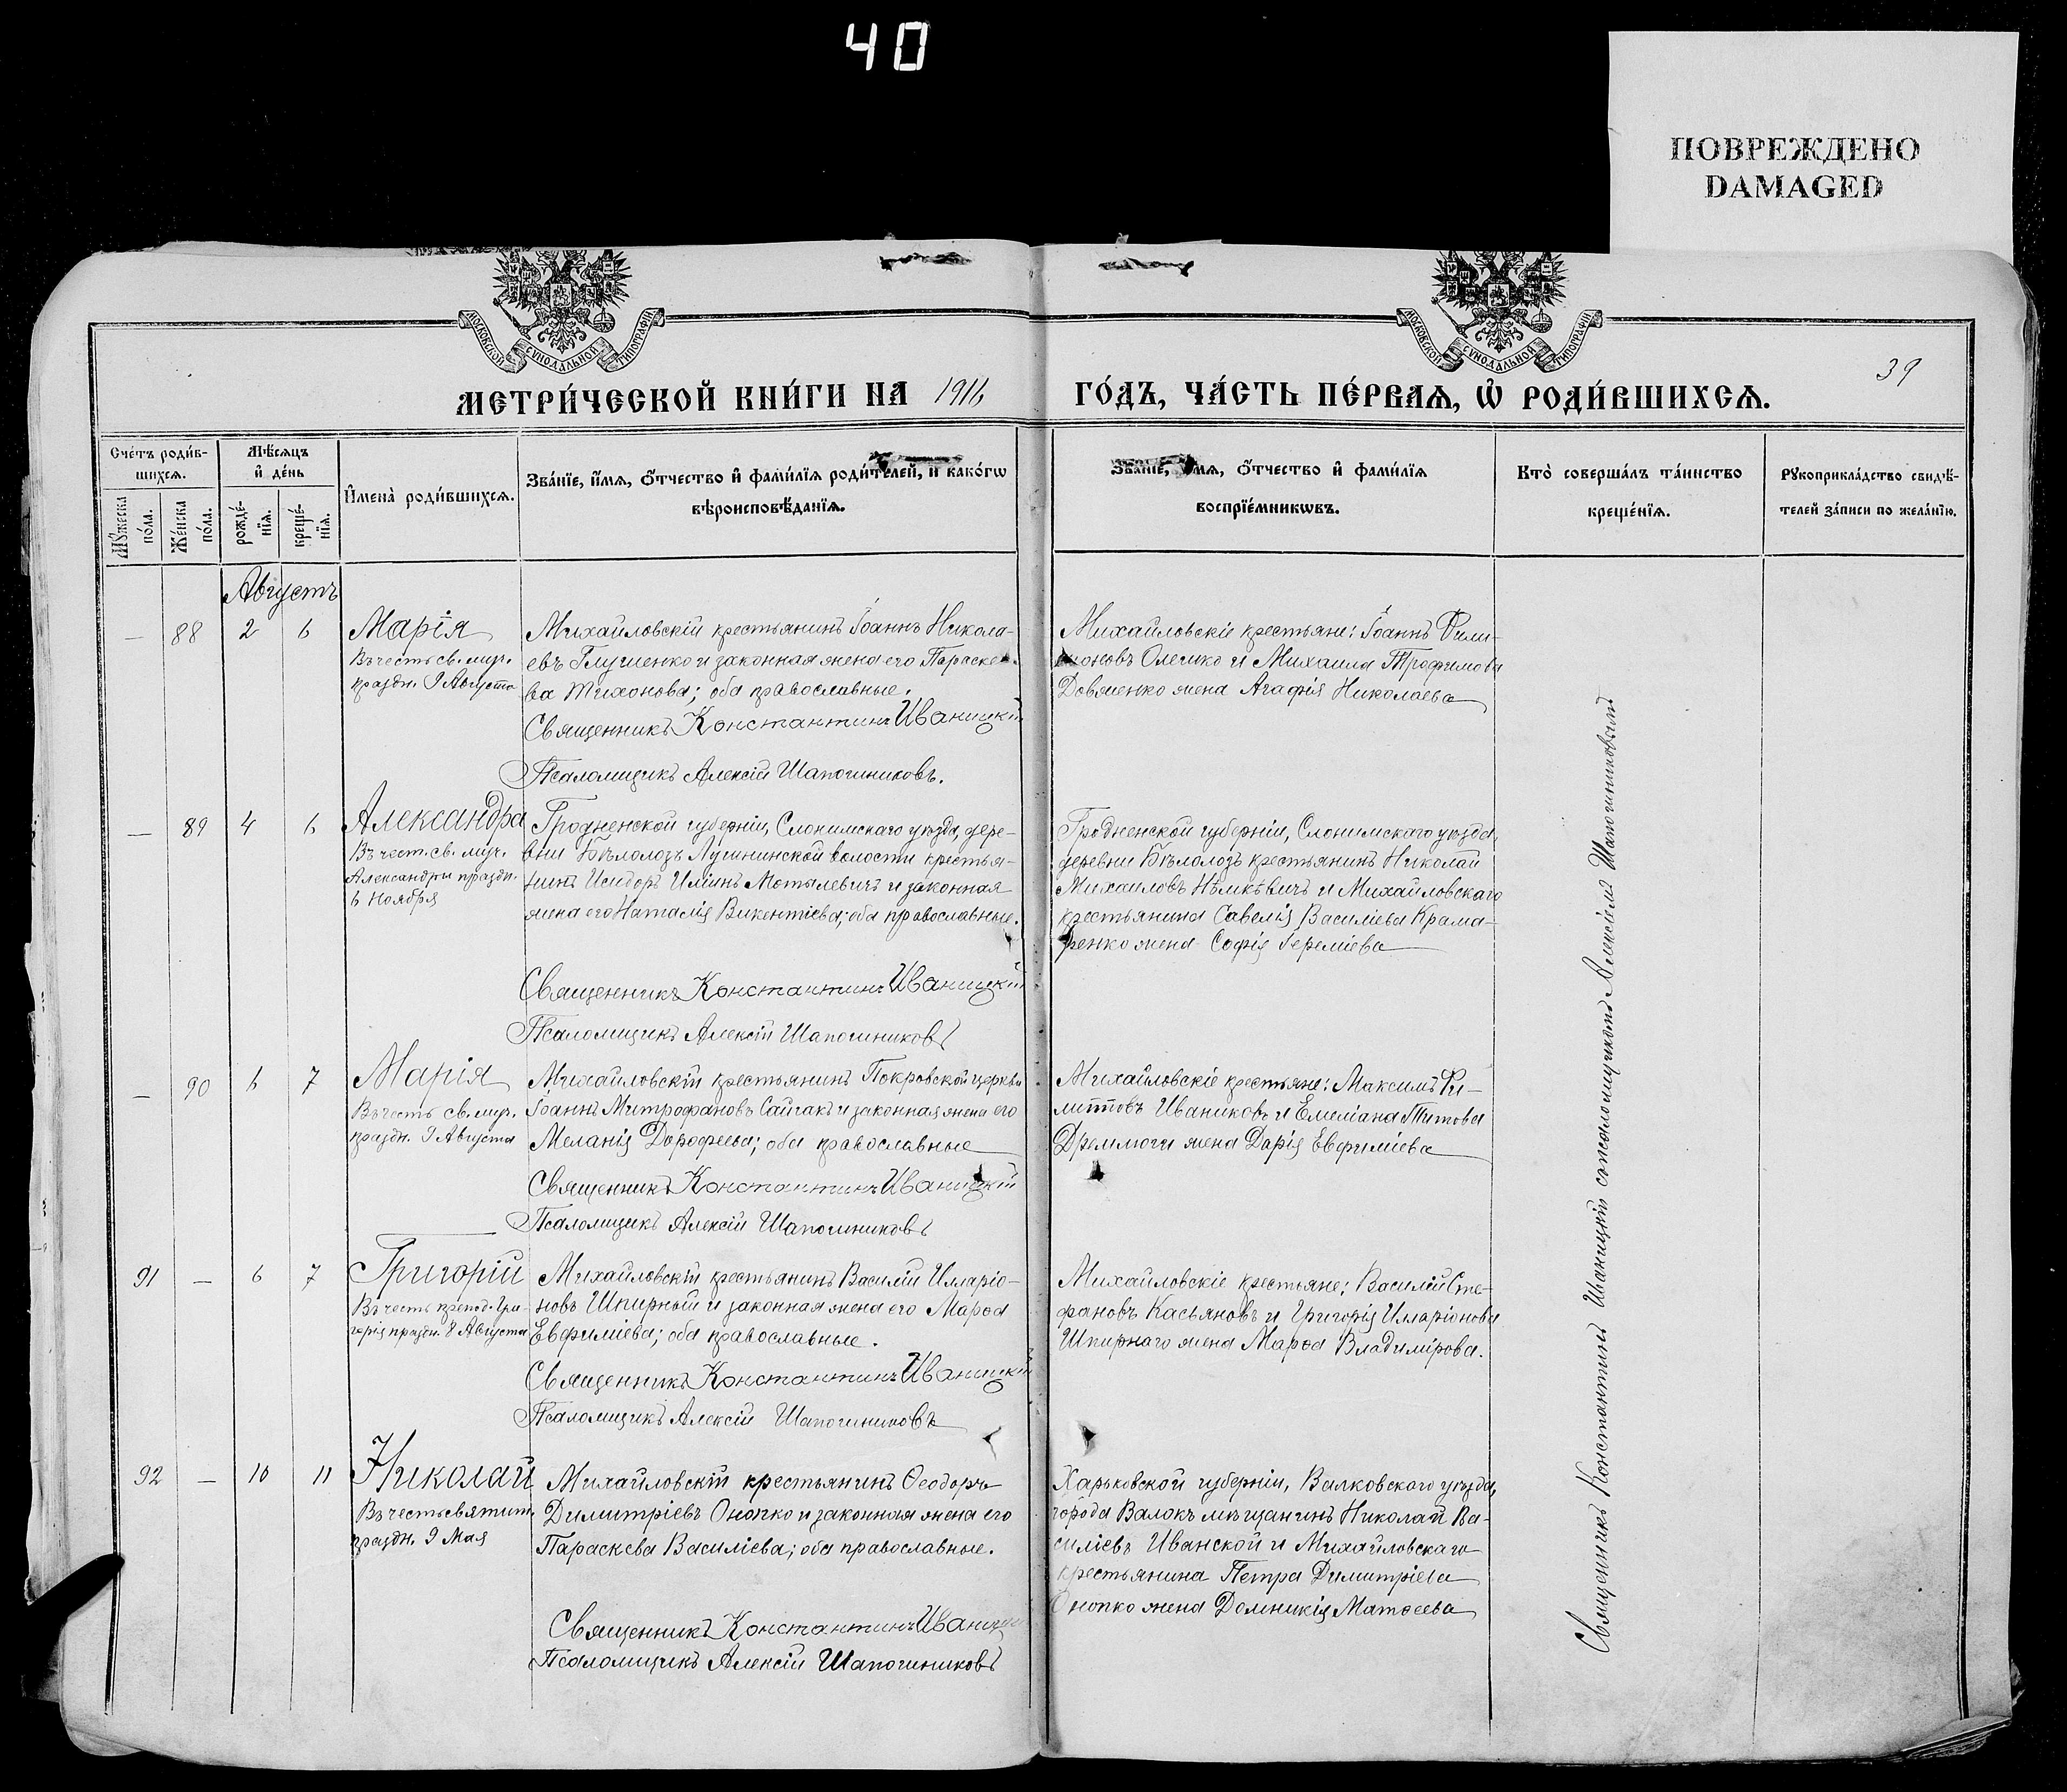 40
ПОВРЕЖДЕНО
DAMAGED
МОСКОВСКОЙ СУНОДАЛЬНОЙ ТИПОГРАФІИ
МОСКОВСКОЙ СУНОДАЛЬНОЙ ТИПОГРАФІИ
39
МЕТРИ́ЧЕСКОЙ КНИ́ГИ НА 1916
ГО́ДЪ, ЧА́СТЬ ПЕ́РВАѦ, Ѡ РОДИ́ВШИХСѦ.
Сче́тъ роди́в-
шихсѧ.
Мꙋ́жеска
по́ла.
Же́нска
по́ла.
Мѣ́сѧцъ
и де́нь
рожде́-
нїѧ.
креще́-
нїѧ.
Имена̀ роди́вшихсѧ.
Зва́нїе, и́мѧ, ѻ́тчество и фами́лїѧ роди́телей, и како́гѡ
вѣроисповѣ́данїѧ.
Зва́нїе, и́мѧ, ѻ́тчество и фами́лїѧ
воспрїе́мникѡвъ.
Кто̀ соверша́лъ та́инство
креще́нїѧ.
Рꙋкоприкла́дство свидѣ́-
телей за́писи по жела́нїю.
Августъ
— 88 2 6 Марія
Въ честь св. муч.
праздн. 9 Августа
Михайловскій крестьянинъ Іоаннъ Никола-
евъ Глущенко и законная жена его Параске-
ва Тихонова; оба православные.
Священникъ Константинъ Иваницкій
Псаломщикъ Алексій Шапошниковъ.
Михайловскіе крестьяне: Іоаннъ Фили-
моновъ Олешко и Михаила Трофимова
Довженко жена Агафія Николаева
— 89 4 6 Александра
Въ чест. св. муч.
Александры праздн.
6 Ноября
Гродненской губерніи, Слонимскаго уѣзда, дере-
вни Бѣлолозъ Лушнинской волости крестья-
нинъ Исидоръ Иліинъ Мотылевичъ и законная
жена его Наталія Викентіева; оба православные.
Священникъ Константинъ Иваницкій
Псаломщикъ Алексій Шапошниковъ
Гродненской губерніи, Слонимскаго уѣзда,
деревни Бѣлолозъ крестьянинъ Николай
Михаиловъ Нѣмкѣвичъ и Михайловскаго
крестьянина Савелія Василіева Крама-
ренко жена Софія Іереміева
— 90 6 7 Марія
Въ честь св. муч.
праздн. 9 Августа
Михайловскій крестьянинъ Покровской церкви
Іоаннъ Митрофановъ Сайгакъ и законная жена его
Меланія Дорофеева; оба православные
Священникъ Константинъ Иваницкій
Псаломщикъ Алексій Шапошниковъ
Михайловскіе крестьяне: Максимъ Фи-
липповъ Иваниковъ и Емеліана Титова
Дремлюги жена Дарія Евфиміева
91 — 6 7 Григорій
Въ честь препод. Гри-
горія праздн. 8 Августа
Михайловскій крестьянинъ Василій Илларіо-
новъ Шпирный и законная жена его Марѳа
Евфиміева; оба православные.
Священникъ Константинъ Иваницкій
Псаломщикъ Алексій Шапошниковъ
Михайловскіе крестьяне: Василій Сте-
фановъ Касьяновъ и Григорія Илларіонова
Шпирнаго жена Марѳа Владимірова.
92 — 10 11 Николай
Въ честь святит.
праздн. 9 Мая
Михайловскій крестьянинъ Ѳеодоръ
Димитріевъ Онопко и законная жена его
Параскева Василіева; оба православные.
Священникъ Константинъ Иваницкій
Псаломщикъ Алексій Шапошниковъ
Харьковской губерніи, Валковскаго уѣзда,
города Валокъ мѣщанинъ Николай Ва-
силіевъ Иванской и Михайловскаго
крестьянина Петра Димитріева
Онопко жена Домникія Матѳеева
Священникъ Константинъ Иваницкій съ псаломщикомъ Алексіемъ Шапошниковымъ